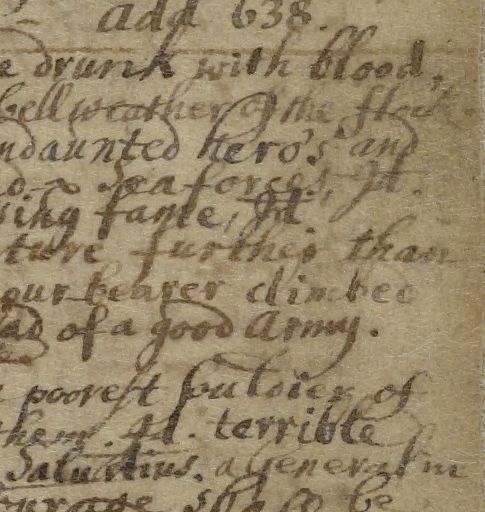 add 638.
drunk with blood,
bellweather of the flock
undaunted hero's and
Sea forces, Id.
fame, Id
ture further than
our bearer climbed
ad of a good Army.
poorest souldier of
them. Id. terrible
Salustius. a general in
courage should be